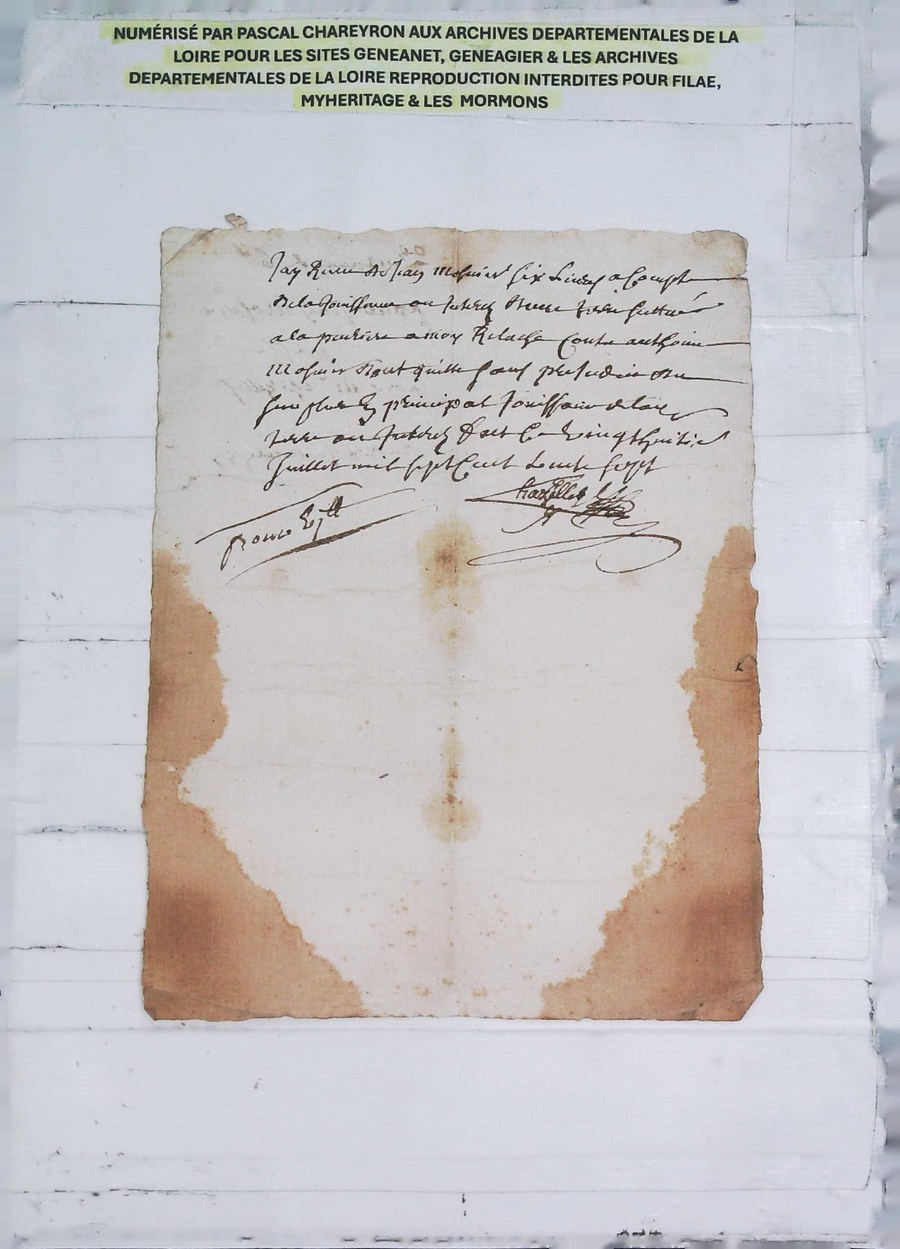 NUMÉRISÉ PAR PASCAL CHAREYRON AUX ARCHIVES DEPARTEMENTALES DE LA
LOIRE POUR LES SITES GENEANET, GENEAGIER & LES ARCHIVES
DEPARTEMENTALES DE LA LOIRE REPRODUCTION INTERDITES POUR FILAE,
MYHERITAGE & LES MORMONS
Jay Receu de Jean mosnier six Livres a Compte
de la Jouissance ou Interest dune terre scittuée
a la a moy Relaché Contre anthoine
mosnier dont quitte sans prejudice du
surplus Et principal Jouissance de lad
terre ou Interest fait Ce vingthuitie
Juillet mil sept Cent trente sept